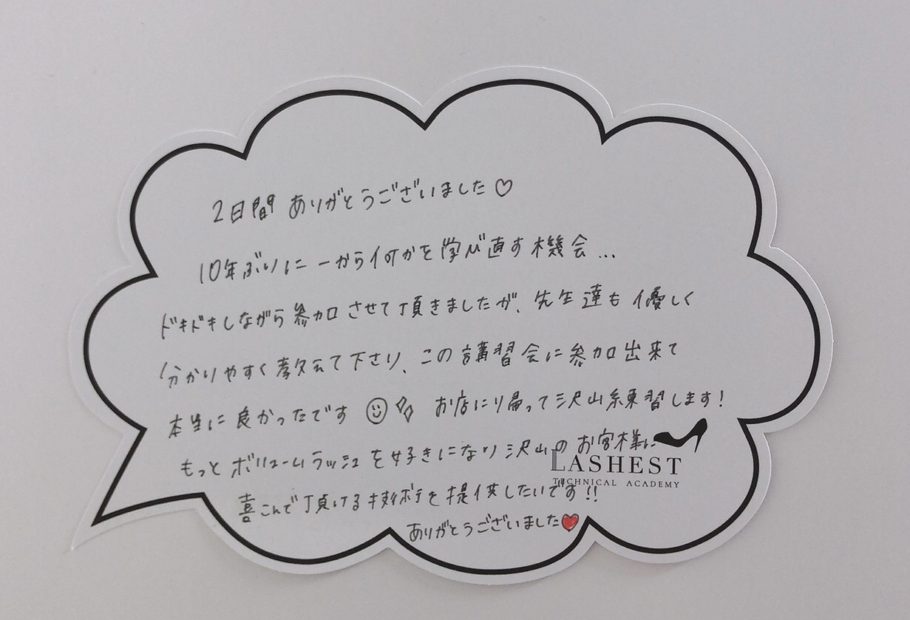 2日間 ありがとうございました♡
10年ぶりに 一から何かを学び直す機会...
ドキドキしながら参加させて頂きましたが、先生達も優しく
分かりやすく教えて下さり、この講習会に参加出来て
本当に良かったです☺✨ お店に帰って沢山練習します!
もっと ボリュームラッシュを好きになり沢山のお客様に
喜こんで頂ける技術を提供したいです!!
ありがとうございました❤
LASHEST
TECHNICAL ACADEMY